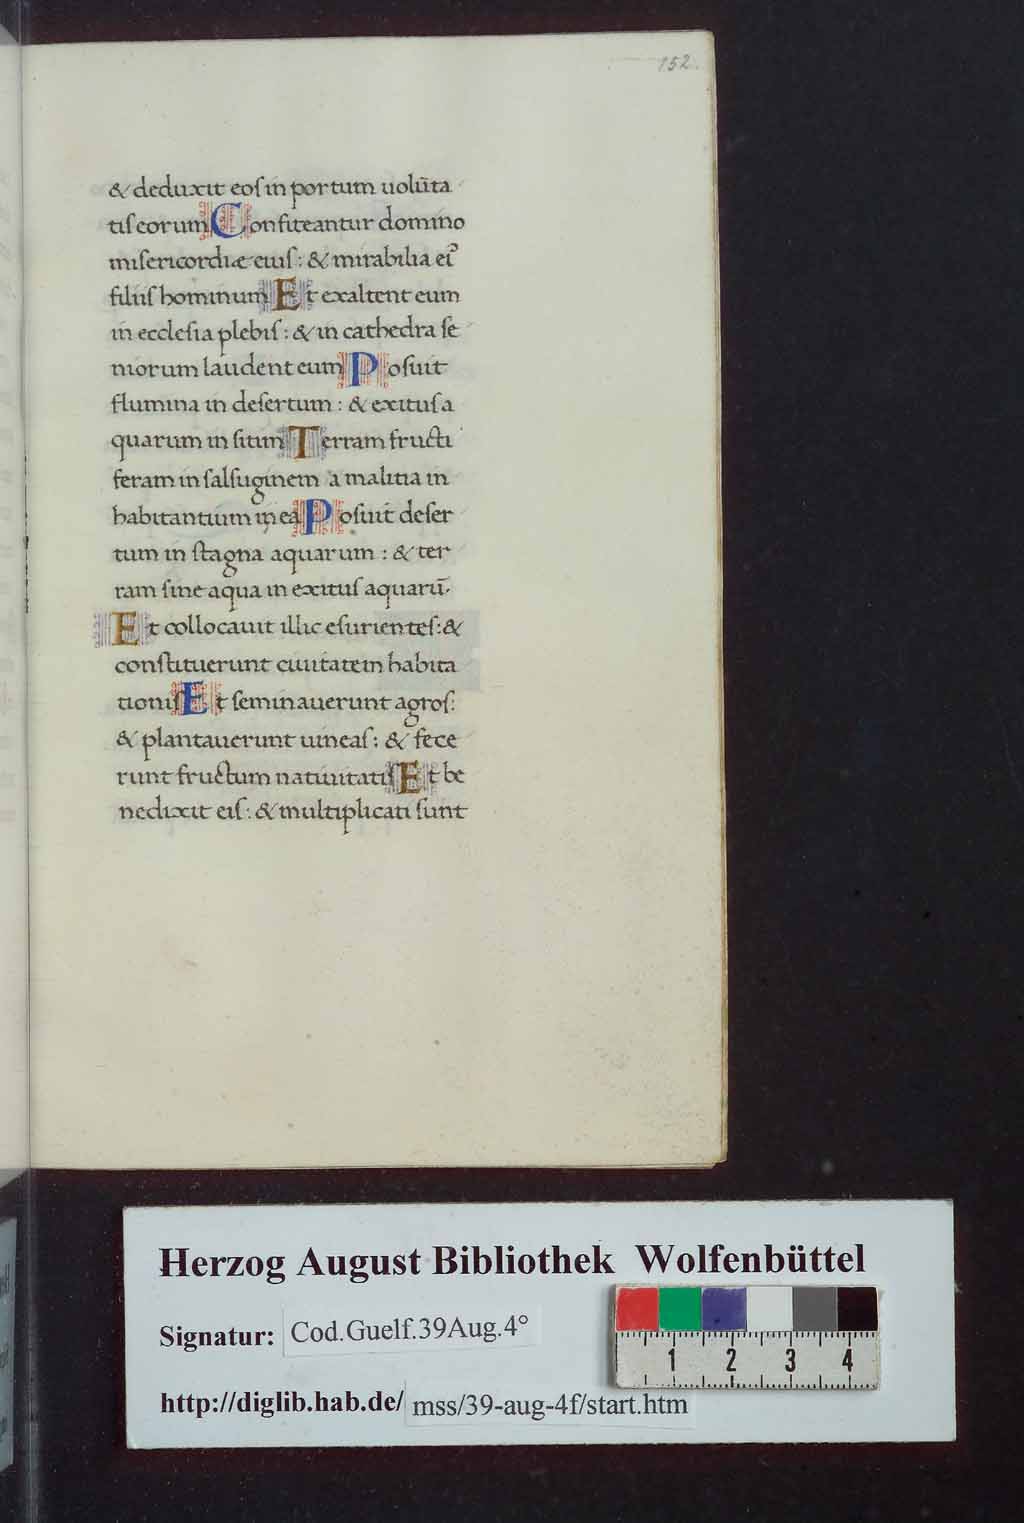 152.
& deduxit eoſ in portum uolūta
tiſ eorum Confiteantur domino
miſericordiæ eiuſ : & mirabilia ei⁹
filiiſ hominum Et exaltent eum
in eccleſia plebiſ : & in cathedra ſe
niorum laudent eum Poſuit
flumina in deſertum : & exituſ a
quarum in ſitim Terram fructi
feram in ſalſuginem a malitia in
habitantium in ea Poſuit deſer
tum in ſtagna aquarum : & ter
ram ſine aqua in exituſ aquarū.
Et collocauit illic eſurienteſ : &
conſtituerunt ciuitatem habita
tioniſ Et ſeminauerunt agroſ :
& plantauerunt uineaſ : & fece
runt fructum natiuitatiſ Et be
nedixit eiſ : & multiplicati ſunt
Herzog August Bibliothek Wolfenbüttel
Signatur: Cod.Guelf.39Aug.4°
http://diglib.hab.de/ mss/39-aug-4f/start.htm
1 2 3 4